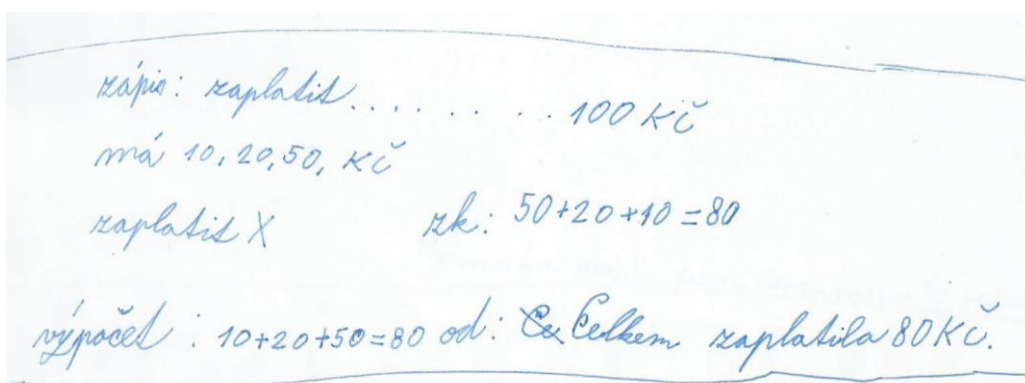 zápis: zaplatit......... 100 Kč
má 10, 20, 50, Kč
zaplatit X zk: 50+20+10=80
výpočet: 10+20+50=80 od: Ce Celkem zaplatila 80 Kč.